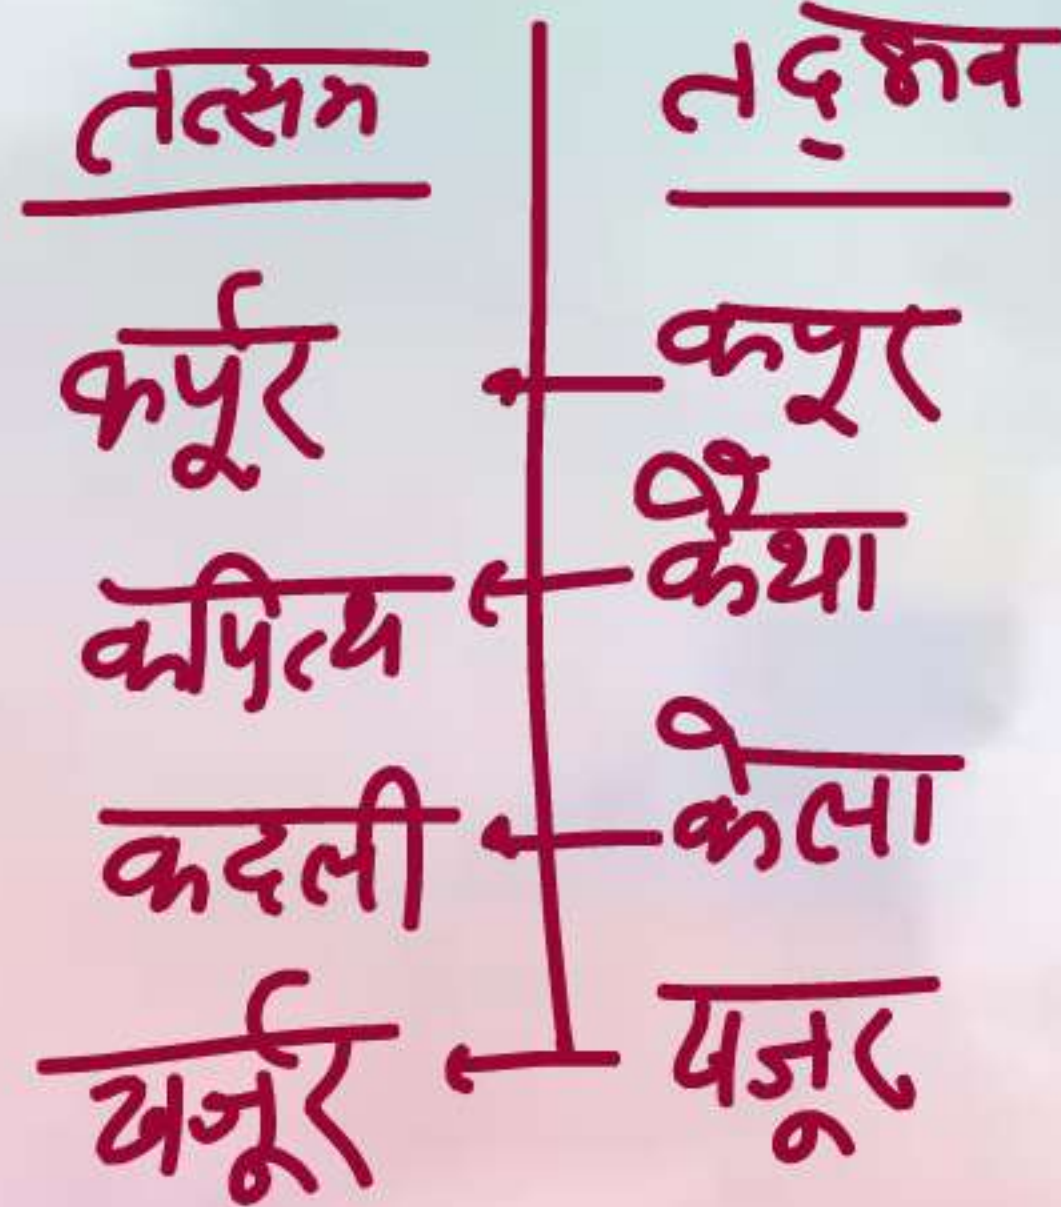 तत्सम तद्भव
कर्पूर कपूर
कपित्थ कैथा
कदली केला
खर्जूर खजूर